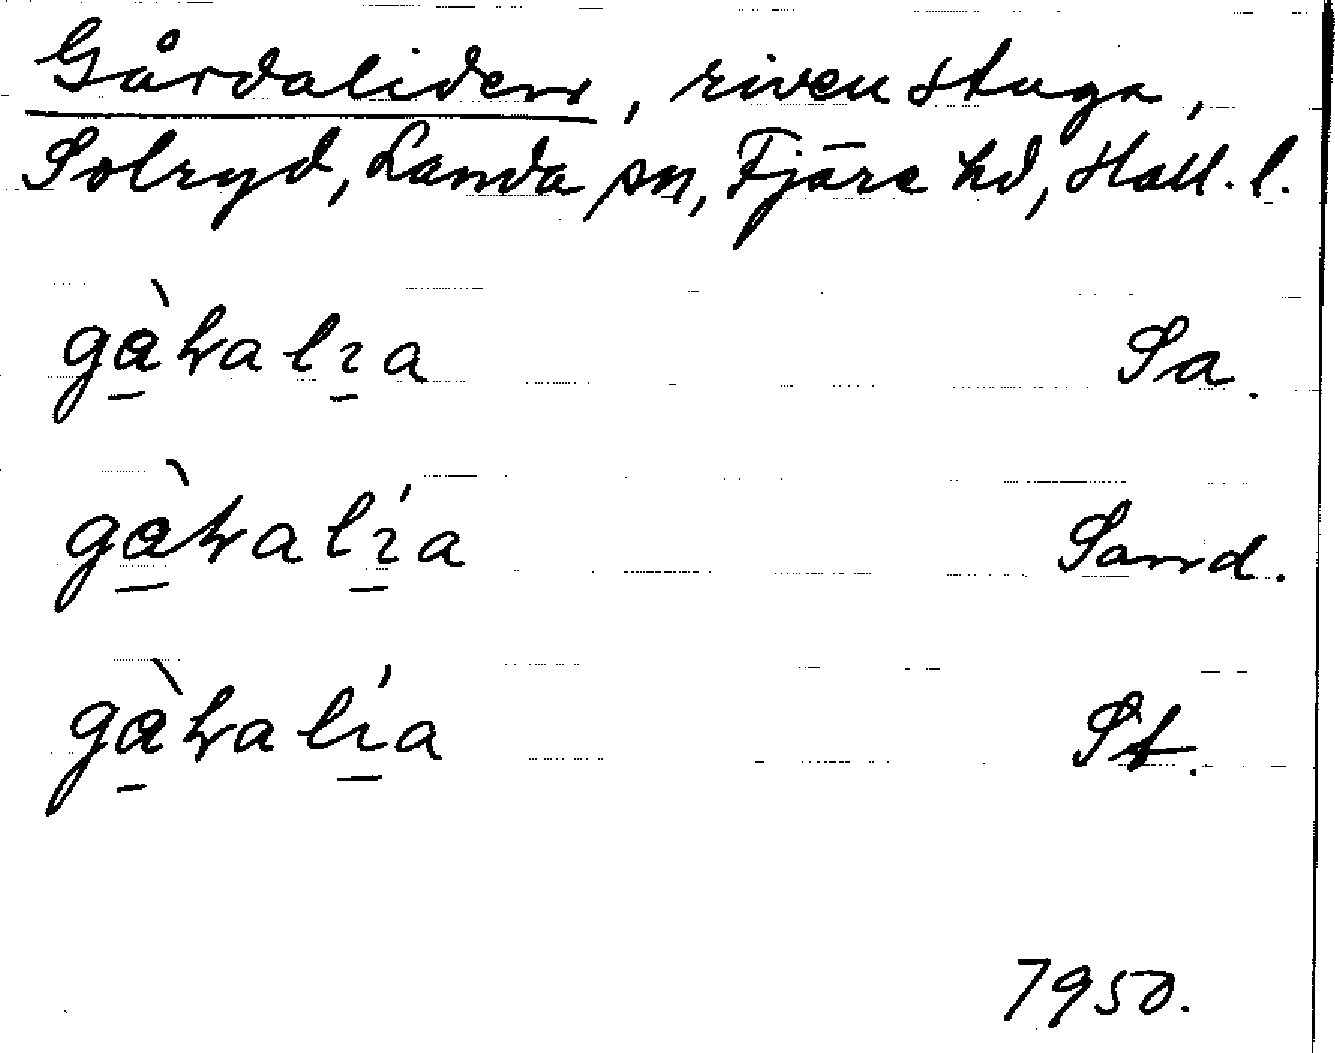 Gårdaliden, riven stuga,
Solryd, Landa sn, Fjäre hd, Hall. l.
gàhalıa Sa.
gàhalí̱a Sand.
gàhalía St.
1950.